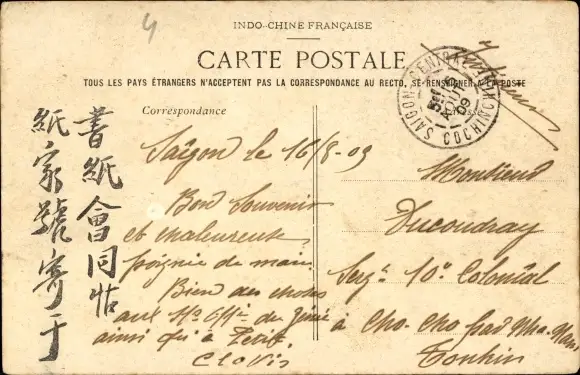 4
INDO-CHINE FRANÇAISE
CARTE POSTALE
TOUS LES PAYS ÉTRANGERS N'ACCEPTENT PAS LA CORRESPONDANCE AU RECTO, SE RENSEIGNER A LA POSTE
SAIGON-CENTRAL
COCHINCHINE
AOUT
09
Correspondance
Saïgon le 16/8-09
Bons Souvenirs
et chaleureuse
poignée de main.
Bien des choses
aux du Génie
ainsi qu'à
Clovis
Monsieur
Ducoudray
Sergt 10e Colonial
à Cho-Cho par
Tonkin
書紙會同
紙家號寄于